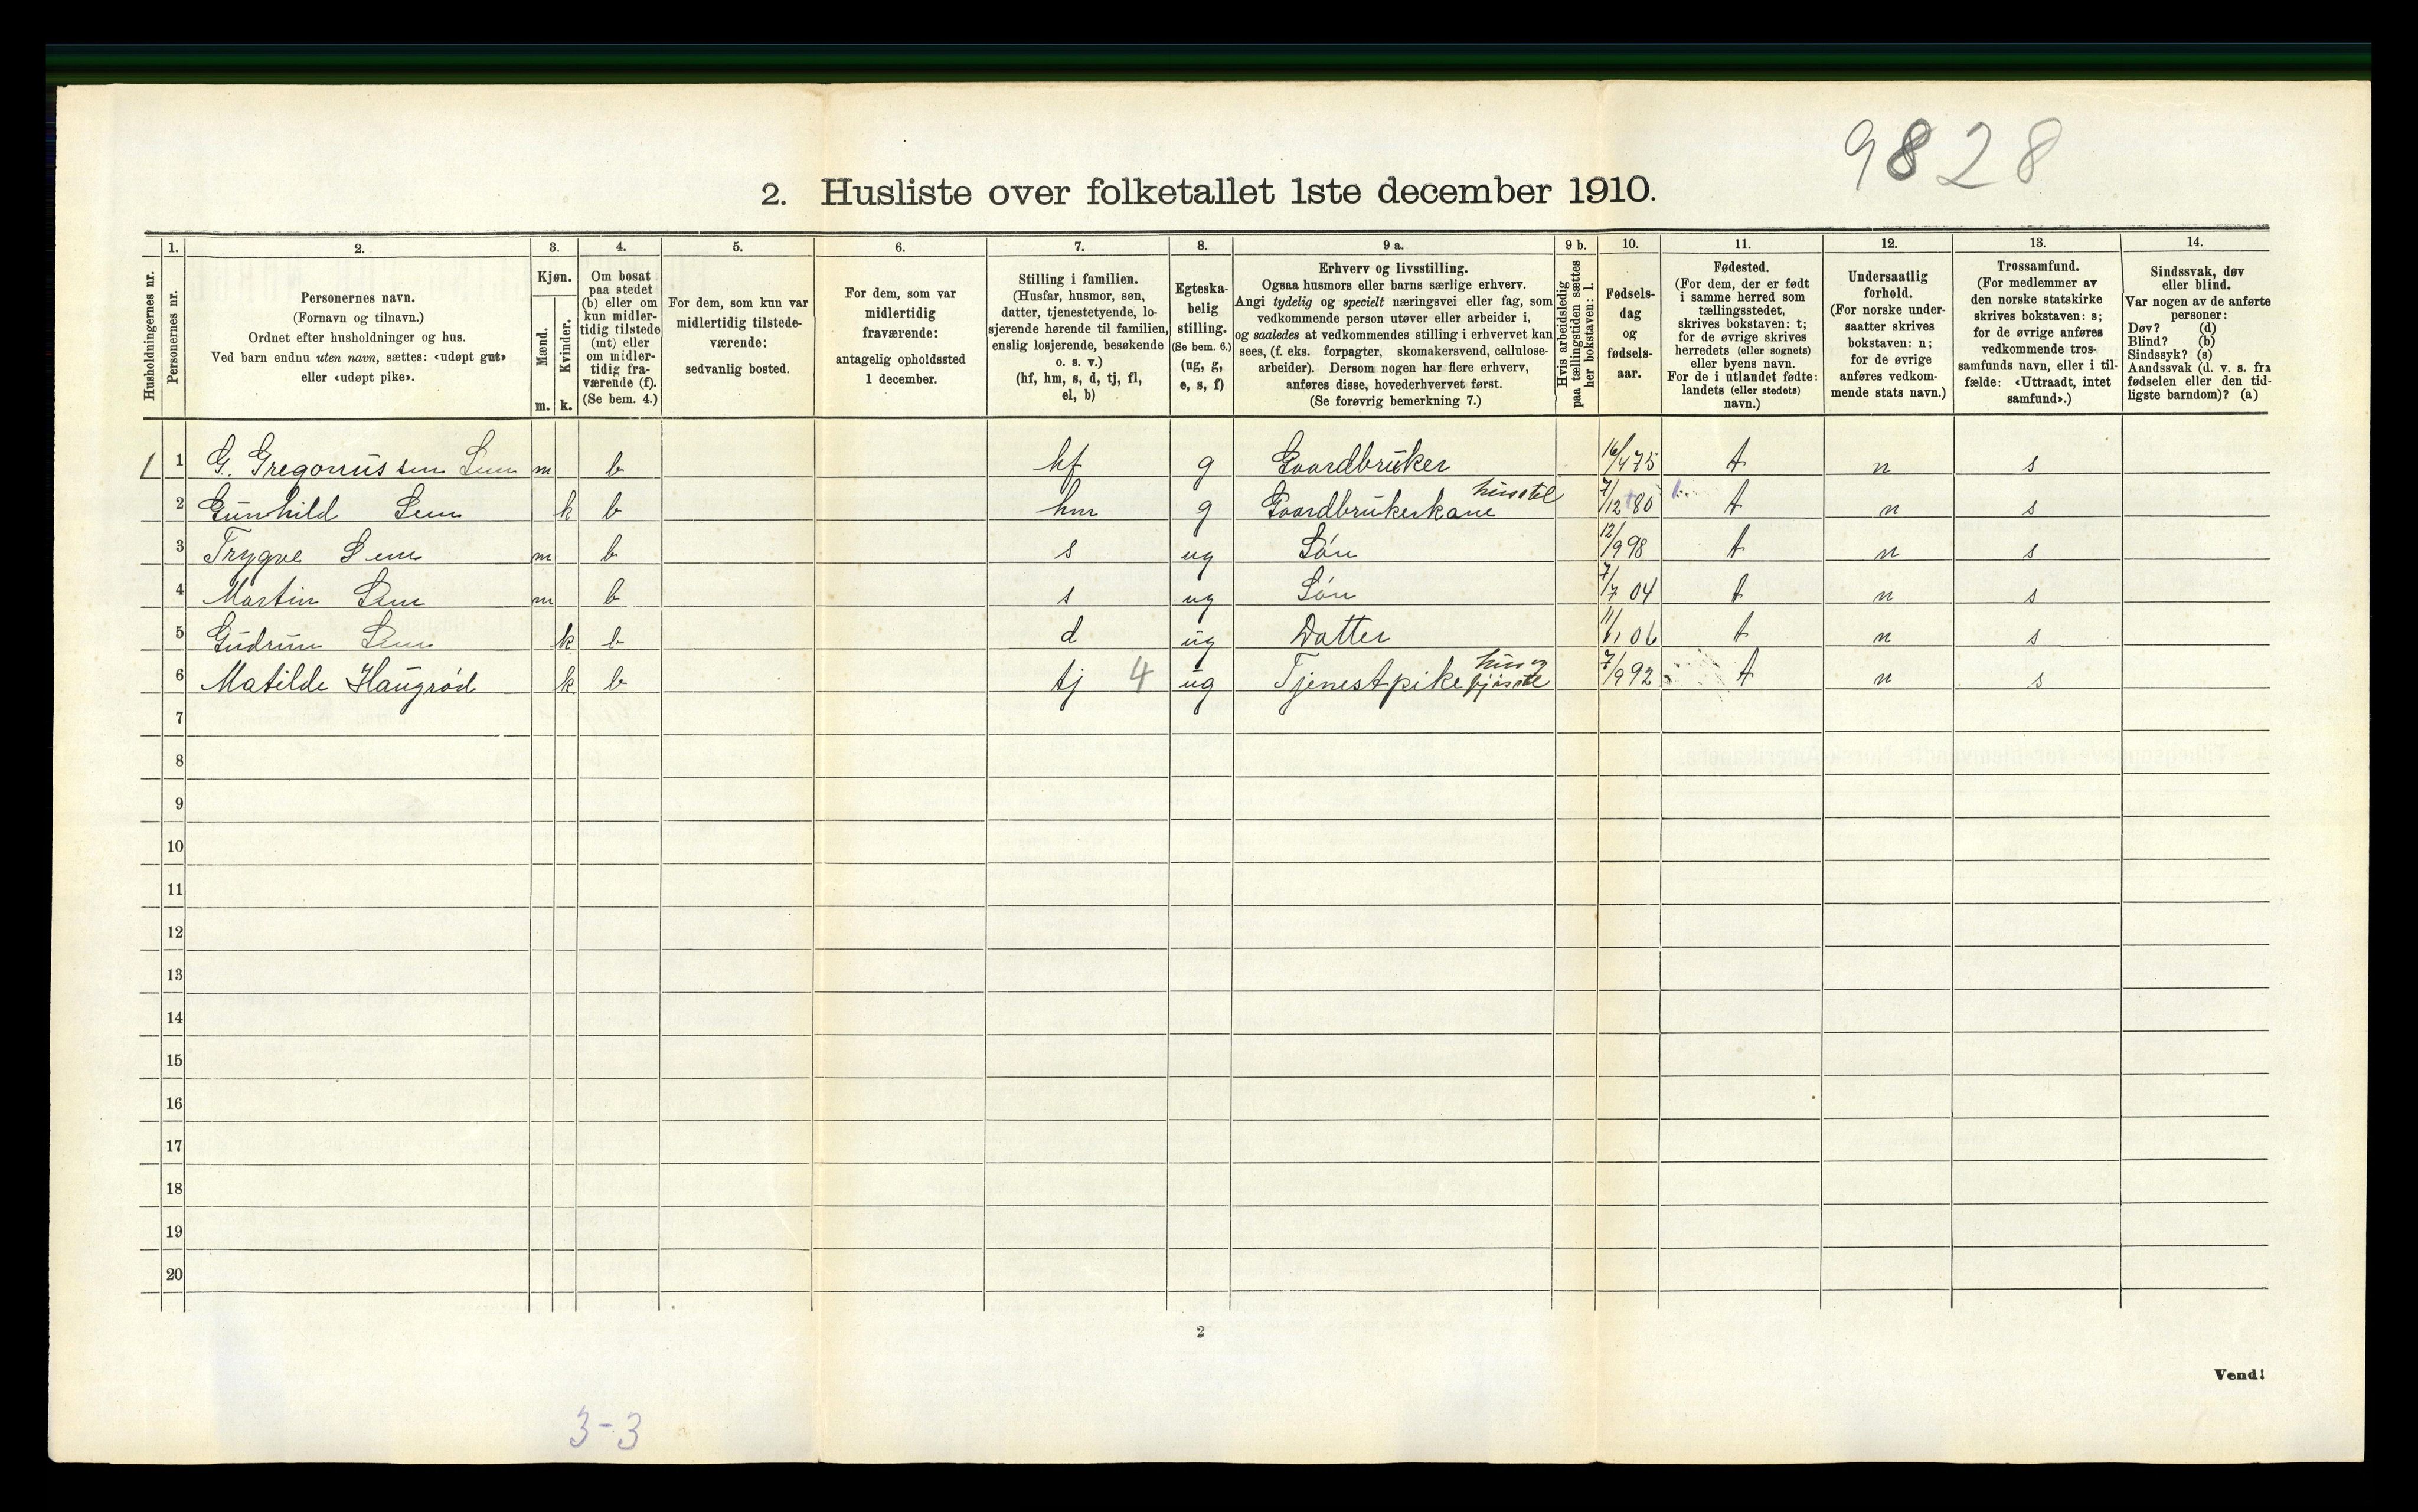 9828
2. Husliste over folketallet 1ste december 1910.
Husholdningernes nr.
1.
Personernes nr.
2.
Personernes navn.
(Fornavn og tilnavn.)
Ordnet efter husholdninger og hus.
Ved barn endnu uten navn, sættes: «udøpt gut»
eller «udøpt pike».
3.
Kjøn.
Mænd.
Kvinder.
m. k.
4.
Om bosat
paa stedet
(b) eller om
kun midler-
tidig tilstede
(mt) eller
om midler-
tidig fra-
værende (f).
(Se bem. 4.)
5.
For dem, som kun var
midlertidig tilstede-
værende:
sedvanlig bosted.
6.
For dem, som var
midlertidig
fraværende:
antagelig opholdssted
1 december.
7.
Stilling i familien.
(Husfar, husmor, søn,
datter, tjenestetyende, lo-
sjerende hørende til familien,
enslig losjerende, besøkende
o. s. v.)
(hf, hm, s, d, tj, fl,
el, b)
8.
Egteska-
belig
stilling.
(Se bem. 6.)
(ug, g,
e, s, f)
9 a.
Erhverv og livsstilling.
Ogsaa husmors eller barns særlige erhverv.
Angi tydelig og specielt næringsvei eller fag, som
vedkommende person utøver eller arbeider i,
og saaledes at vedkommendes stilling i erhvervet kan
sees, (f. eks. forpagter, skomakersvend, cellulose-
arbeider). Dersom nogen har flere erhverv,
anføres disse, hovederhvervet først.
(Se forøvrig bemerkning 7.)
9 b.
Hvis arbeidsledig
paa tællingstiden sættes
her bokstaven: l.
10.
Fødsels-
dag
og
fødsels-
aar.
11.
Fødested.
(For dem, der er født
i samme herred som
tællingsstedet,
skrives bokstaven: t;
for de øvrige skrives
herredets (eller sognets)
eller byens navn.
For de i utlandet fødte:
landets (eller stedets)
navn.)
12.
Undersaatlig
forhold.
(For norske under-
saatter skrives
bokstaven: n;
for de øvrige
anføres vedkom-
mende stats navn.)
13.
Trossamfund.
(For medlemmer av
den norske statskirke
skrives bokstaven: s;
for de øvrige anføres
vedkommende tros-
samfunds navn, eller i til-
fælde: «Uttraadt, intet
samfund».)
14.
Sindssvak, døv
eller blind.
Var nogen av de anførte
personer:
Døv? (d)
Blind? (b)
Sindssyk? (s)
Aandssvak (d. v. s. fra
fødselen eller den tid-
ligste barndom)? (a)
1 1 G. Gregoriussen Sem m b hf g Gaardbruker 16/4 75 t n s
2 Gunhild Sem k b hm g Gaardbrukerkane husstel 7/12 80 t n s
3 Trygve Sem m b s ug Søn 12/9 98 t n s
4 Martin Sem m b s ug Søn 7/7 04 t n s
5 Gudrun Sem k b d ug Datter 11/1 06 t n s
6 Matilde Haugrød k b tj 4 ug Tjenestpike hus og fjøsstel 7/9 92 t n s
7
8
9
10
11
12
13
14
15
16
17
18
19
20
2
Vend!
3-3